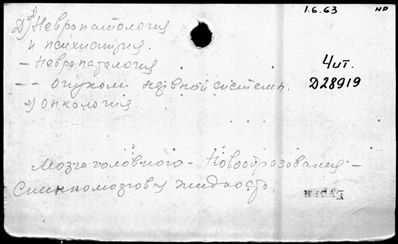 1.6.63 НР
Д) 1) Невропатология
и психиатрия.
— Невропаталогия
— — Опухоли нервной системы.
2) Онкология
Чит.
Д28919
Мозга головного — Новообразования —
Спинномозговая жидкость.